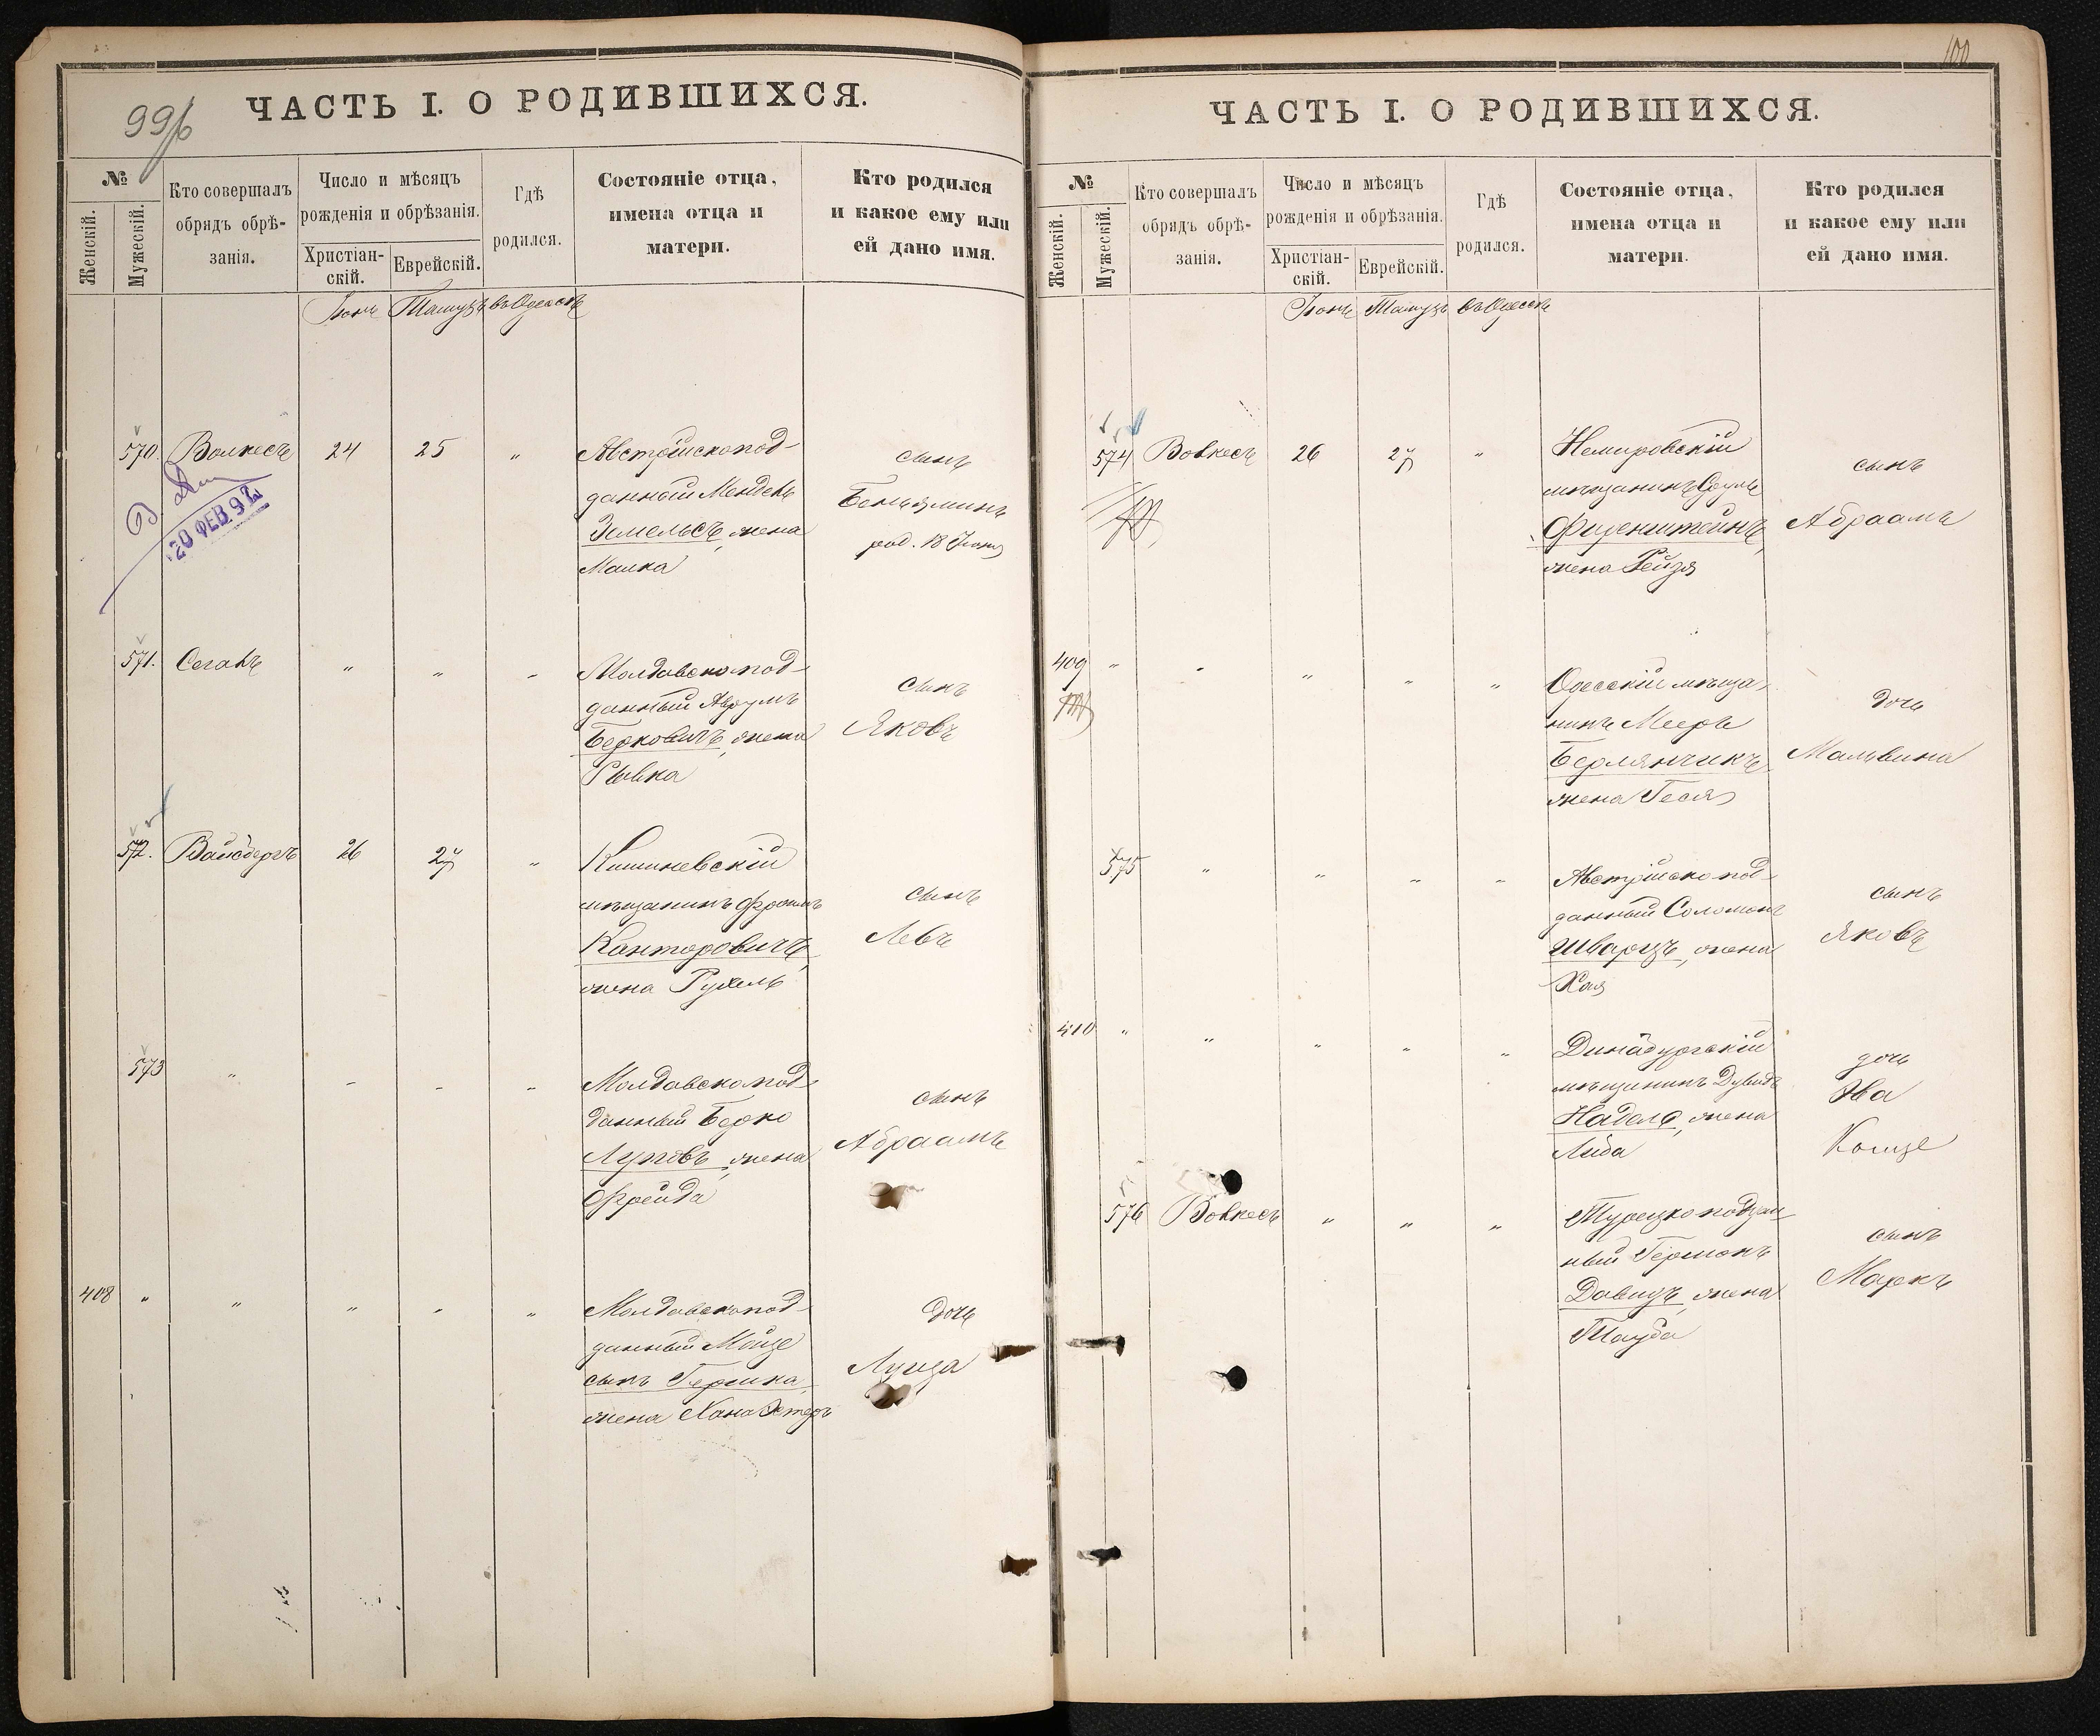 99/б
ЧАСТЬ I. О РОДИВШИХСЯ.
№
Женскій.
Мужескій.
Кто совершалъ
обрядъ обрѣ-
занія.
Число и мѣсяцъ
рожденія и обрѣзанія.
Христіан-
скій.
Еврейскій.
Гдѣ
родился.
Состояніе отца,
имена отца и
матери.
Кто родился
и какое ему или
ей дано имя.
Іюнь Тамузъ въ Одессѣ
570. Волкесъ 24 25 "
Австрійскоподданный Мендель
Земельсъ, жена
Малка
сынъ
Беньяминъ
род. 18 Іюня
20 ФЕВ. 92
571. Сегалъ " " "
Молдавскопод-
данный Аврумъ
Берковичъ, жена
Рывка
сынъ
Яковъ
572. Вайсбергъ 26 27 "
Кишиневскій
мѣщанинъ Фроимъ
Канторовичъ,
жена Рухель
сынъ
Левъ
573 " " " "
Молдавскопод-
данный Берко
Луповъ, жена
Фрейда
сынъ
Абраамъ
408 " " " " "
Молдавскопод-
данный Мойзе
сынъ Гершка,
жена Хана Эстеръ
дочь
Луиза
100
ЧАСТЬ I. О РОДИВШИХСЯ.
№
Женскій.
Мужескій.
Кто совершалъ
обрядъ обрѣ-
занія.
Число и мѣсяцъ
рожденія и обрѣзанія.
Христіан-
скій.
Еврейскій.
Гдѣ
родился.
Состояніе отца,
имена отца и
матери.
Кто родился
и какое ему или
ей дано имя.
Іюнь Тамузъ въ Одессѣ
574 Вовкесъ 26 27 "
Немировскій
мѣщанинъ Сруль
Фиренштейнъ,
жена Рейзя
сынъ
Абраамъ
409 " " " " "
Одесскій мѣща-
нинъ Мееръ
Берлянчикъ,
жена Геся
дочь
Мальвина
575 " " " "
Австрійскопод-
данный Соломонъ
Шварцъ, жена
Хая
сынъ
Яковъ
410 " " " " "
Динабургскій
мѣщанинъ Дувидъ
Надель, жена
Либа
дочь
Эва
576 Вовкесъ " " "
Турецкоподдан-
ный Германъ
Давидъ, жена
Тауба
сынъ
Маркъ